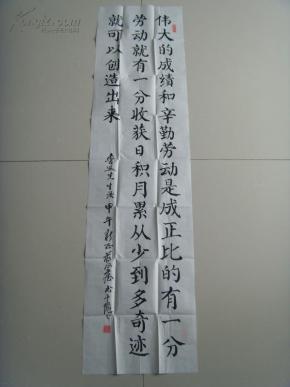 伟大的成绩和辛勤劳动是成正比的有一分
劳动就有一分收获日积月累从少到多奇迹
就可以创造出来
鲁迅先生语 甲午